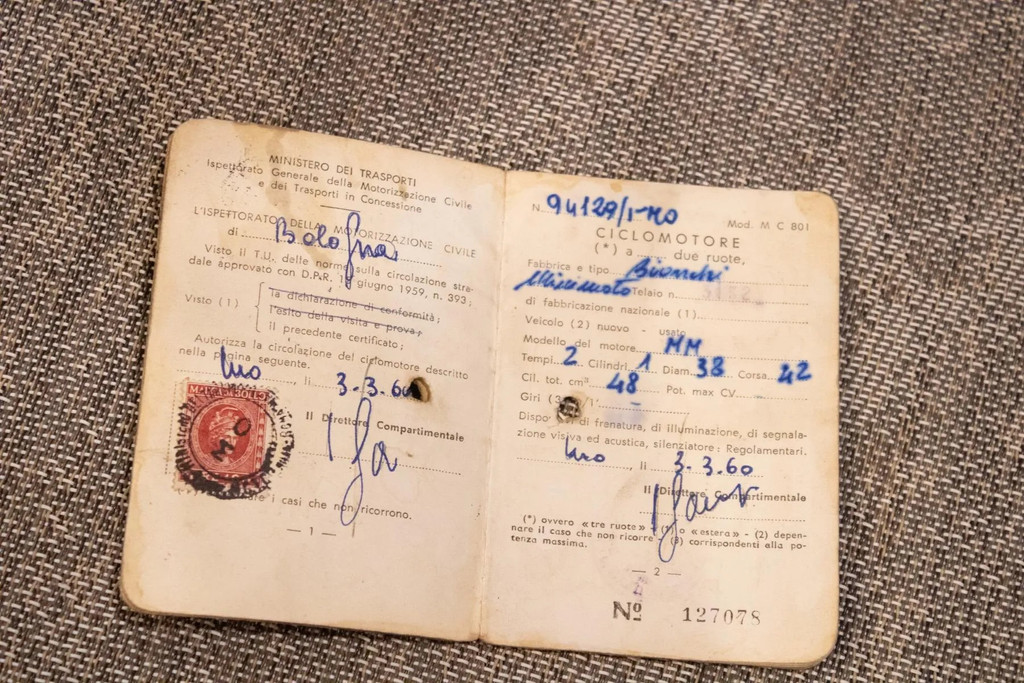 MINISTERO DEI TRASPORTI
Ispettorato Generale della Motorizzazione Civile
e dei Trasporti in Concessione
L'ISPETTORATO DELLA MOTORIZZAZIONE CIVILE
di Bologna
Visto il T.U. delle norme sulla circolazione stra-
dale approvato con D.P.R. 1 giugno 1959, n. 393;
la dichiarazione di conformità;
Visto (1) l'esito della visita e prova;
il precedente certificato;
Autorizza la circolazione del ciclomotore descritto
nella pagina seguente.
, li 3.3.60
Il Direttore Compartimentale
i casi che non ricorrono.
— 1 —
N. 94129/1-MO Mod. M C 801
CICLOMOTORE
(*) a due ruote,
Fabbrica e tipo Bianchi
Minimoto Telaio n.
di fabbricazione nazionale (1)
Veicolo (2) nuovo - usato
Modello del motore MM
Tempi 2 Cilindri 1 Diam. 38 Corsa 42
Cil. tot. cm³ 48 Pot. max CV
Giri (3) /1'
Dispo di frenatura, di illuminazione, di segnala-
zione visiva ed acustica, silenziatore: Regolamentari.
, li 3.3.60
Il Direttore Compartimentale
(*) ovvero «tre ruote» - (1) o «estera» - (2) depen-
nare il caso che non ricorre - (3) corrispondenti alla po-
tenza massima.
— 2 —
Nº 127078